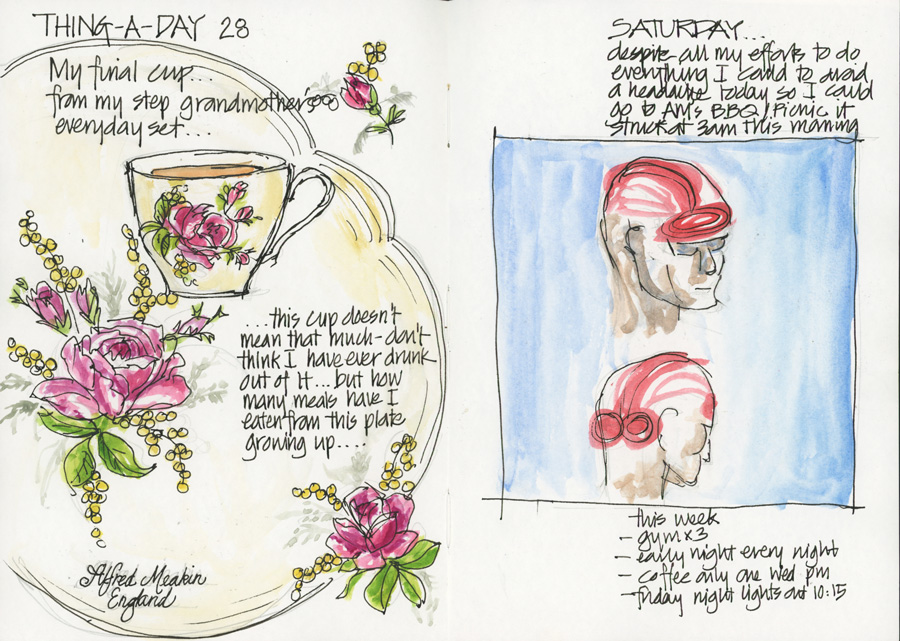 THING-A-DAY 28
My final cup...
from my step grandmother's
everyday set...
...this cup doesn't
mean that much-don't
think I have ever drunk
out of it... but how
many meals have I
eaten from this plate
growing up....
Alfred Meakin
England
SATURDAY...
despite all my efforts to do
everything I could to avoid
a headache today so I could
go to AM's B.B.Q/Picnic it
struck at 3am this morning
this week
- gym x 3
- early night every night
- coffee only one Wed pm
- friday night lights out 10:15